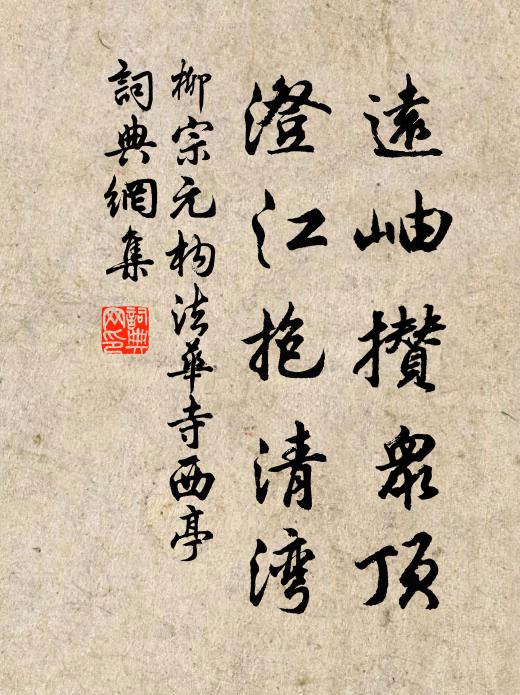 遠岫攢衆頂
澄江抱清湾
柳宗元构法華寺西亭
詞典網集
詞典网印